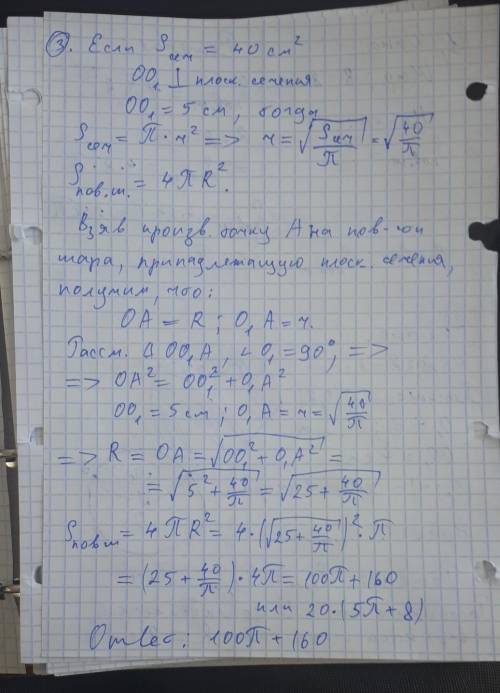 ③. Если Sсеч = 40 см²
OO₁ ⊥ плоск. сечения
OO₁ = 5 см, тогда
Sсеч = π · r² => r = √(Sсеч/π) = √(40/π)
Sпов.ш. = 4πR².
Взяв произв. точку A на пов-ти
шара, принадлежащую плоск. сечения,
получим, что:
OA = R ; O₁A = r.
Рассм. Δ OO₁A, ∠O₁ = 90°, =>
=> OA² = OO₁² + O₁A²
OO₁ = 5 см ; O₁A = r = √(40/π)
=> R = OA = √(OO₁² + O₁A²) =
= √(5² + 40/π) = √(25 + 40/π)
Sпов.ш = 4πR² = 4·(√(25 + 40/π))² · π
= (25 + 40/π) · 4π = 100π + 160
или 20·(5π + 8)
Ответ: 100π + 160